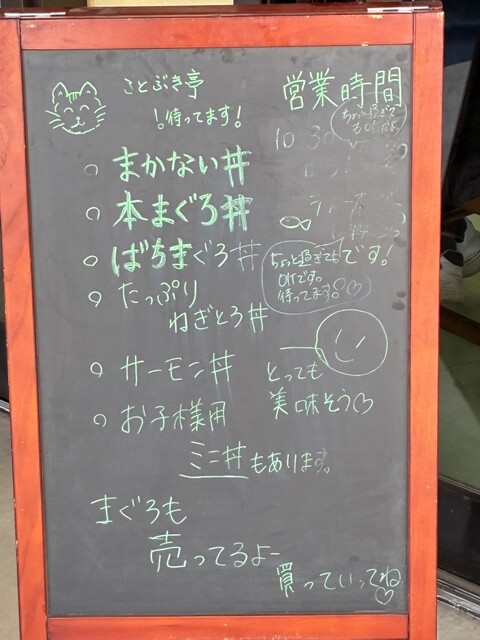 ことぶき亭
!待ってます!
営業時間
ちょっと過ぎて
もOKだよ
10
○ まかない丼
○ 本まぐろ丼
○ ばちまぐろ丼
ちょっと過ぎても
OKです。
待ってます。♡
です!
○ たっぷり
ねぎとろ丼
○ サーモン丼
とっても
美味そう♡
○ お子様用
ミニ丼もあります。
まぐろも
売ってるよー
買っていってね
♡